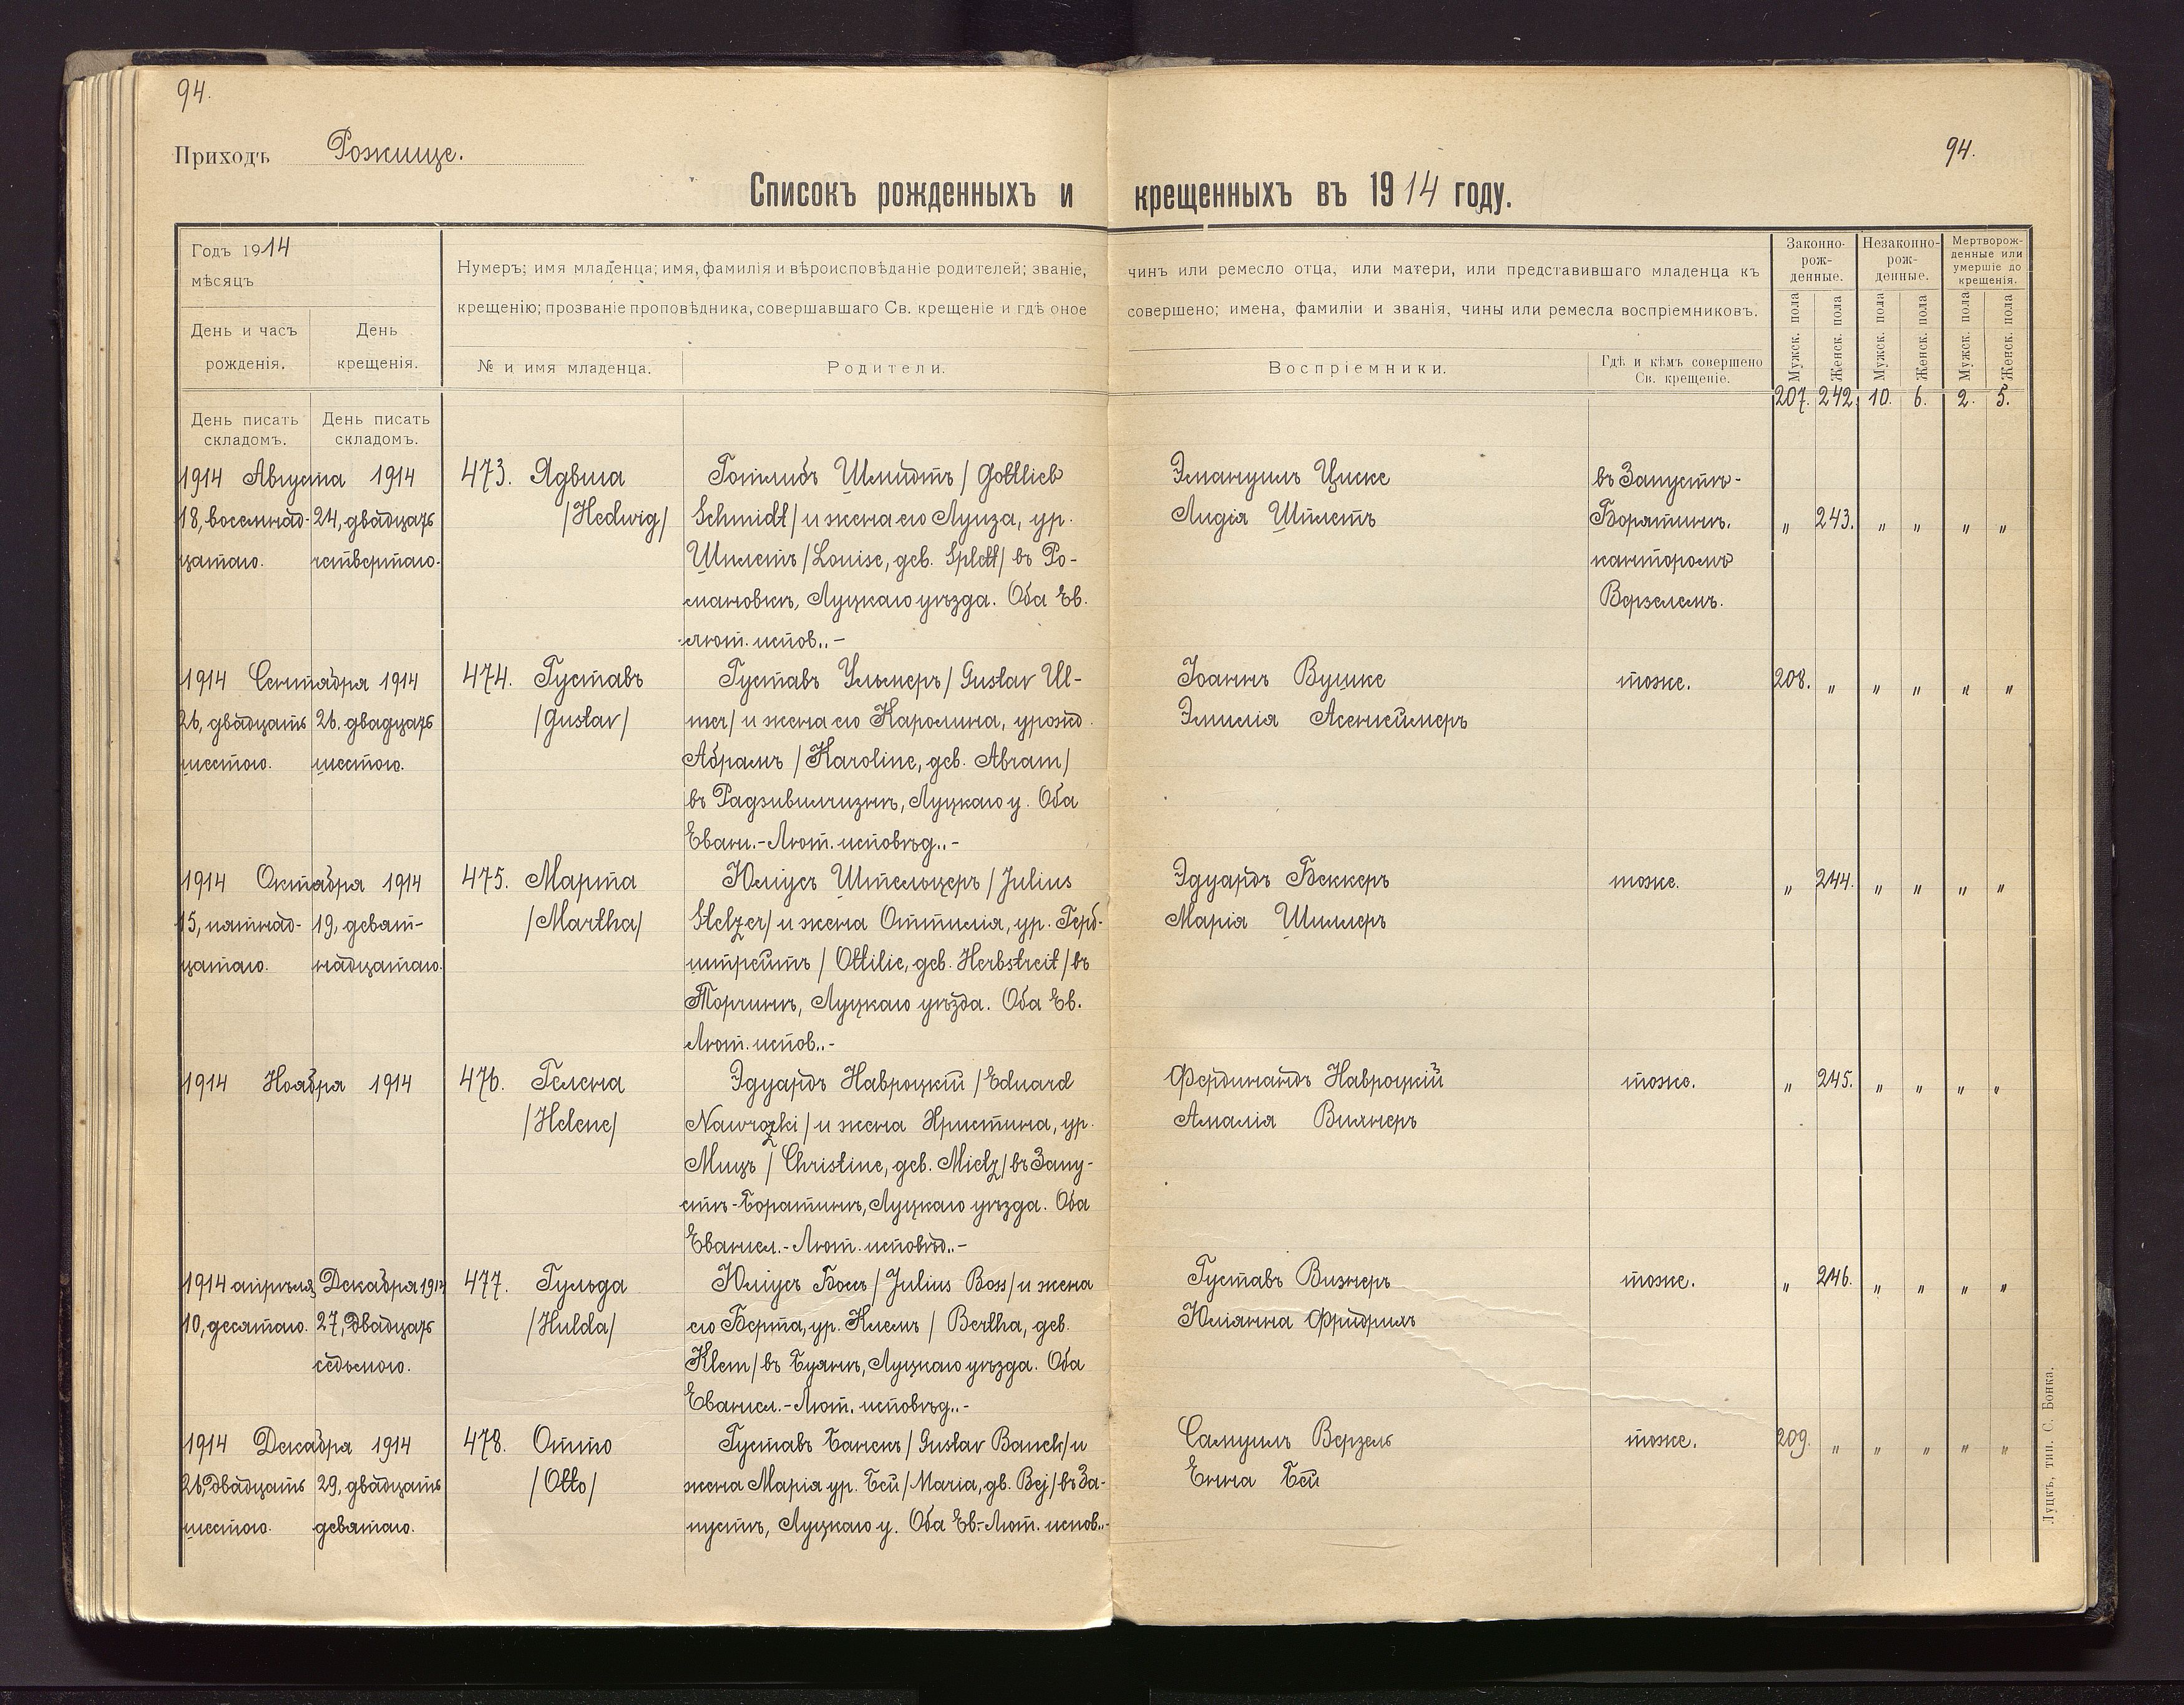 94.
94.
Приходъ Рожище.
Списокъ рожденныхъ и крещенныхъ въ 1914 году.
Годъ 1914
мѣсяцъ
День и часъ рожденія.
День крещенія.
Нумеръ; имя младенца; имя, фамилія и вѣроисповѣданіе родителей; званіе, чинъ или ремесло отца, или матери, или представившаго младенца къ
крещенію; прозваніе проповѣдника, совершавшаго Св. крещеніе и гдѣ оное совершено; имена, фамиліи и званія, чины или ремесла воспріемниковъ.
№ и имя младенца.
Родители.
Воспріемники.
Гдѣ и кѣмъ совершено
Св. крещеніе.
Законно-
рож-
денные.
Незаконно-
рож-
денные.
Мертворож-
денные или
умершіе до
крещенія.
Мужск. пола
Женск. пола
Мужск. пола
Женск. пола
Мужск. пола
Женск. пола
207. 242. 10. 6. 2. 5.
День писать
складомъ.
День писать
складомъ.
1914 Августа 1914
18, восемнад-
цатаго.
24, двадцать
четвертаго.
473. Ядвига
/Hedwig/
Готлибъ Шмидтъ / Gottlieb
Schmidt/ и жена его Луиза, ур.
Шплетъ /Louise, geb. Splett/ въ Ро-
мановкѣ, Луцкаго уѣзда. Оба Ев.
-лют. испов..-
Эмануилъ Циске
Лидія Шплетъ
въ Запустѣ-
Борятинѣ.
канторомъ
Верзелемъ.
„ 243. „ „ „ „
1914 Сентября 1914
26, двадцать
шестого.
26. двадцать
шестого.
474. Густавъ
/Gustav/
Густавъ Ульмеръ/ Gustav Ul-
mer/ и жена его Каролина, урожд.
Абрамъ /Karoline, geb. Abram/
въ Радзивилчизнѣ, Луцкаго у. Оба
Еванг.-Лют. исповѣд..-
Іоаннъ Вушке
Эмилія Асенгеймеръ
тоже.
208. „ „ „ „ „
1914 Октября 1914
15, пятнад-
цатаго.
19, девят-
надцатаго.
475. Марта
/Martha/
Юліусъ Штельцеръ / Julius
Stelzer/ и жена Оттилія, ур. Герб-
штрейтъ / Ottilie, geb. Herbstreit/ въ
Торчинѣ, Луцкаго уѣзда. Оба Ев.
Лют. испов..-
Эдуардъ Беккеръ
Марія Шиллеръ
тоже.
„ 244. „ „ „ „
1914 Ноября 1914
476. Гелена
/Helene/
Эдуардъ Навроцкій /Eduard
Nawrozki/ и жена Христина, ур.
Мицъ / Christine, geb. Mietz/ въ Запу-
стѣ-Боратинѣ, Луцкаго уѣзда. Оба
Евангел.-Лют. исповѣд..-
Фердинандъ Навроцкій
Амалія Вилнеръ
тоже.
„ 245. „ „ „ „
1914 апрѣля
10, десятаго.
Декабря 1914
27, двадцать
седьмого.
477. Гульда
/Hulda/
Юліусъ Боссъ / Julius Boss/ и жена
его Берта, ур. Клемъ / Bertha, geb.
Klem/ въ Буянѣ, Луцкаго уѣзда. Оба
Евангел.-Лют. исповѣд..-
Густавъ Визнеръ
Юліанна Фридрихъ
тоже.
„ 246. „ „ „ „
1914 Декабря 1914
26, двадцать
шестого.
29, двадцать
девятаго.
478. Отто
/Otto/
Густавъ Банекъ / Gustav Banek/ и
жена Марія ур. Бей /Maria, gb. Bej/ въ За-
пустѣ, Луцкаго у. Оба Ев.-Лют. испов..-
Самуилъ Верзель
Енна Бей
тоже.
209. „ „ „ „ „
Луцкъ, тип. С. Бонка.